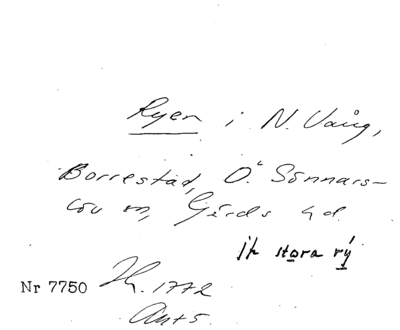 Ryen i N. Vång,
Borrestad, Ö. Sönnars-
löv sn, Gärds hd.
jh stora rý
Nr 7750 Jh. 1772
Ant 5